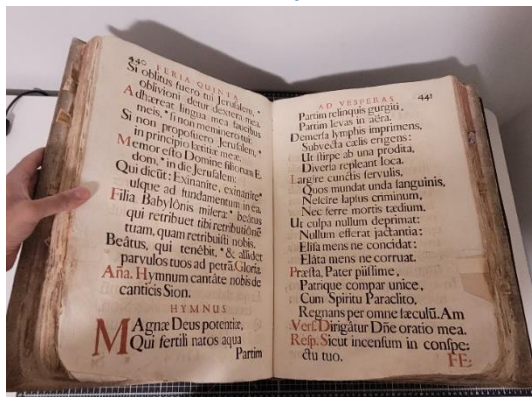 440 FERIA QUINTA
Si oblitus fuero tui Jerusalem, *
oblivioni detur dextera mea.
Adhæreat lingua mea faucibus
meis, * si non meminero tui:
Si non proposuero Jerusalem, *
in principio lætitiæ meæ.
Memor esto Domine filiorum E-
dom, * in die Jerusalem:
Qui dicũt: Exinanite, exinanite *
usque ad fundamentum in ea.
Filia Babylònis misera: * beàtus
qui retribuet tibi retributionẽ
tuam, quam retribuisti nobis.
Beátus, qui tenèbit, * & allidet
parvulos tuos ad petrã. Gloria.
Aña. Hymnum cantáte nobis de
canticis Sion.
HYMNUS
MAgnæ Deus potentiæ,
Qui fertili natos aqua
Partim
AD VESPERAS. 441
Partim relinquis gurgiti,
Partim levas in aëra.
Demersa lymphis imprimens,
Subvecta cælis erigens:
Ut stirpe ab una prodita,
Diversa repleant loca.
Largire cunctis servulis,
Quos mundat unda sanguinis,
Nescire lapsus criminum,
Nec ferre mortis tædium.
Ut culpa nullum deprimat:
Nullum efferat jactantia:
Elisa mens ne concidat:
Eláta mens ne corruat.
Præsta, Pater piissime,
Patrique compar unice,
Cum Spiritu Paraclito,
Regnans per omne sæculũ. Am
Vers. Dirigátur Dñe oratio mea.
Resp. Sicut incensum in conspe-
ctu tuo.
FE-